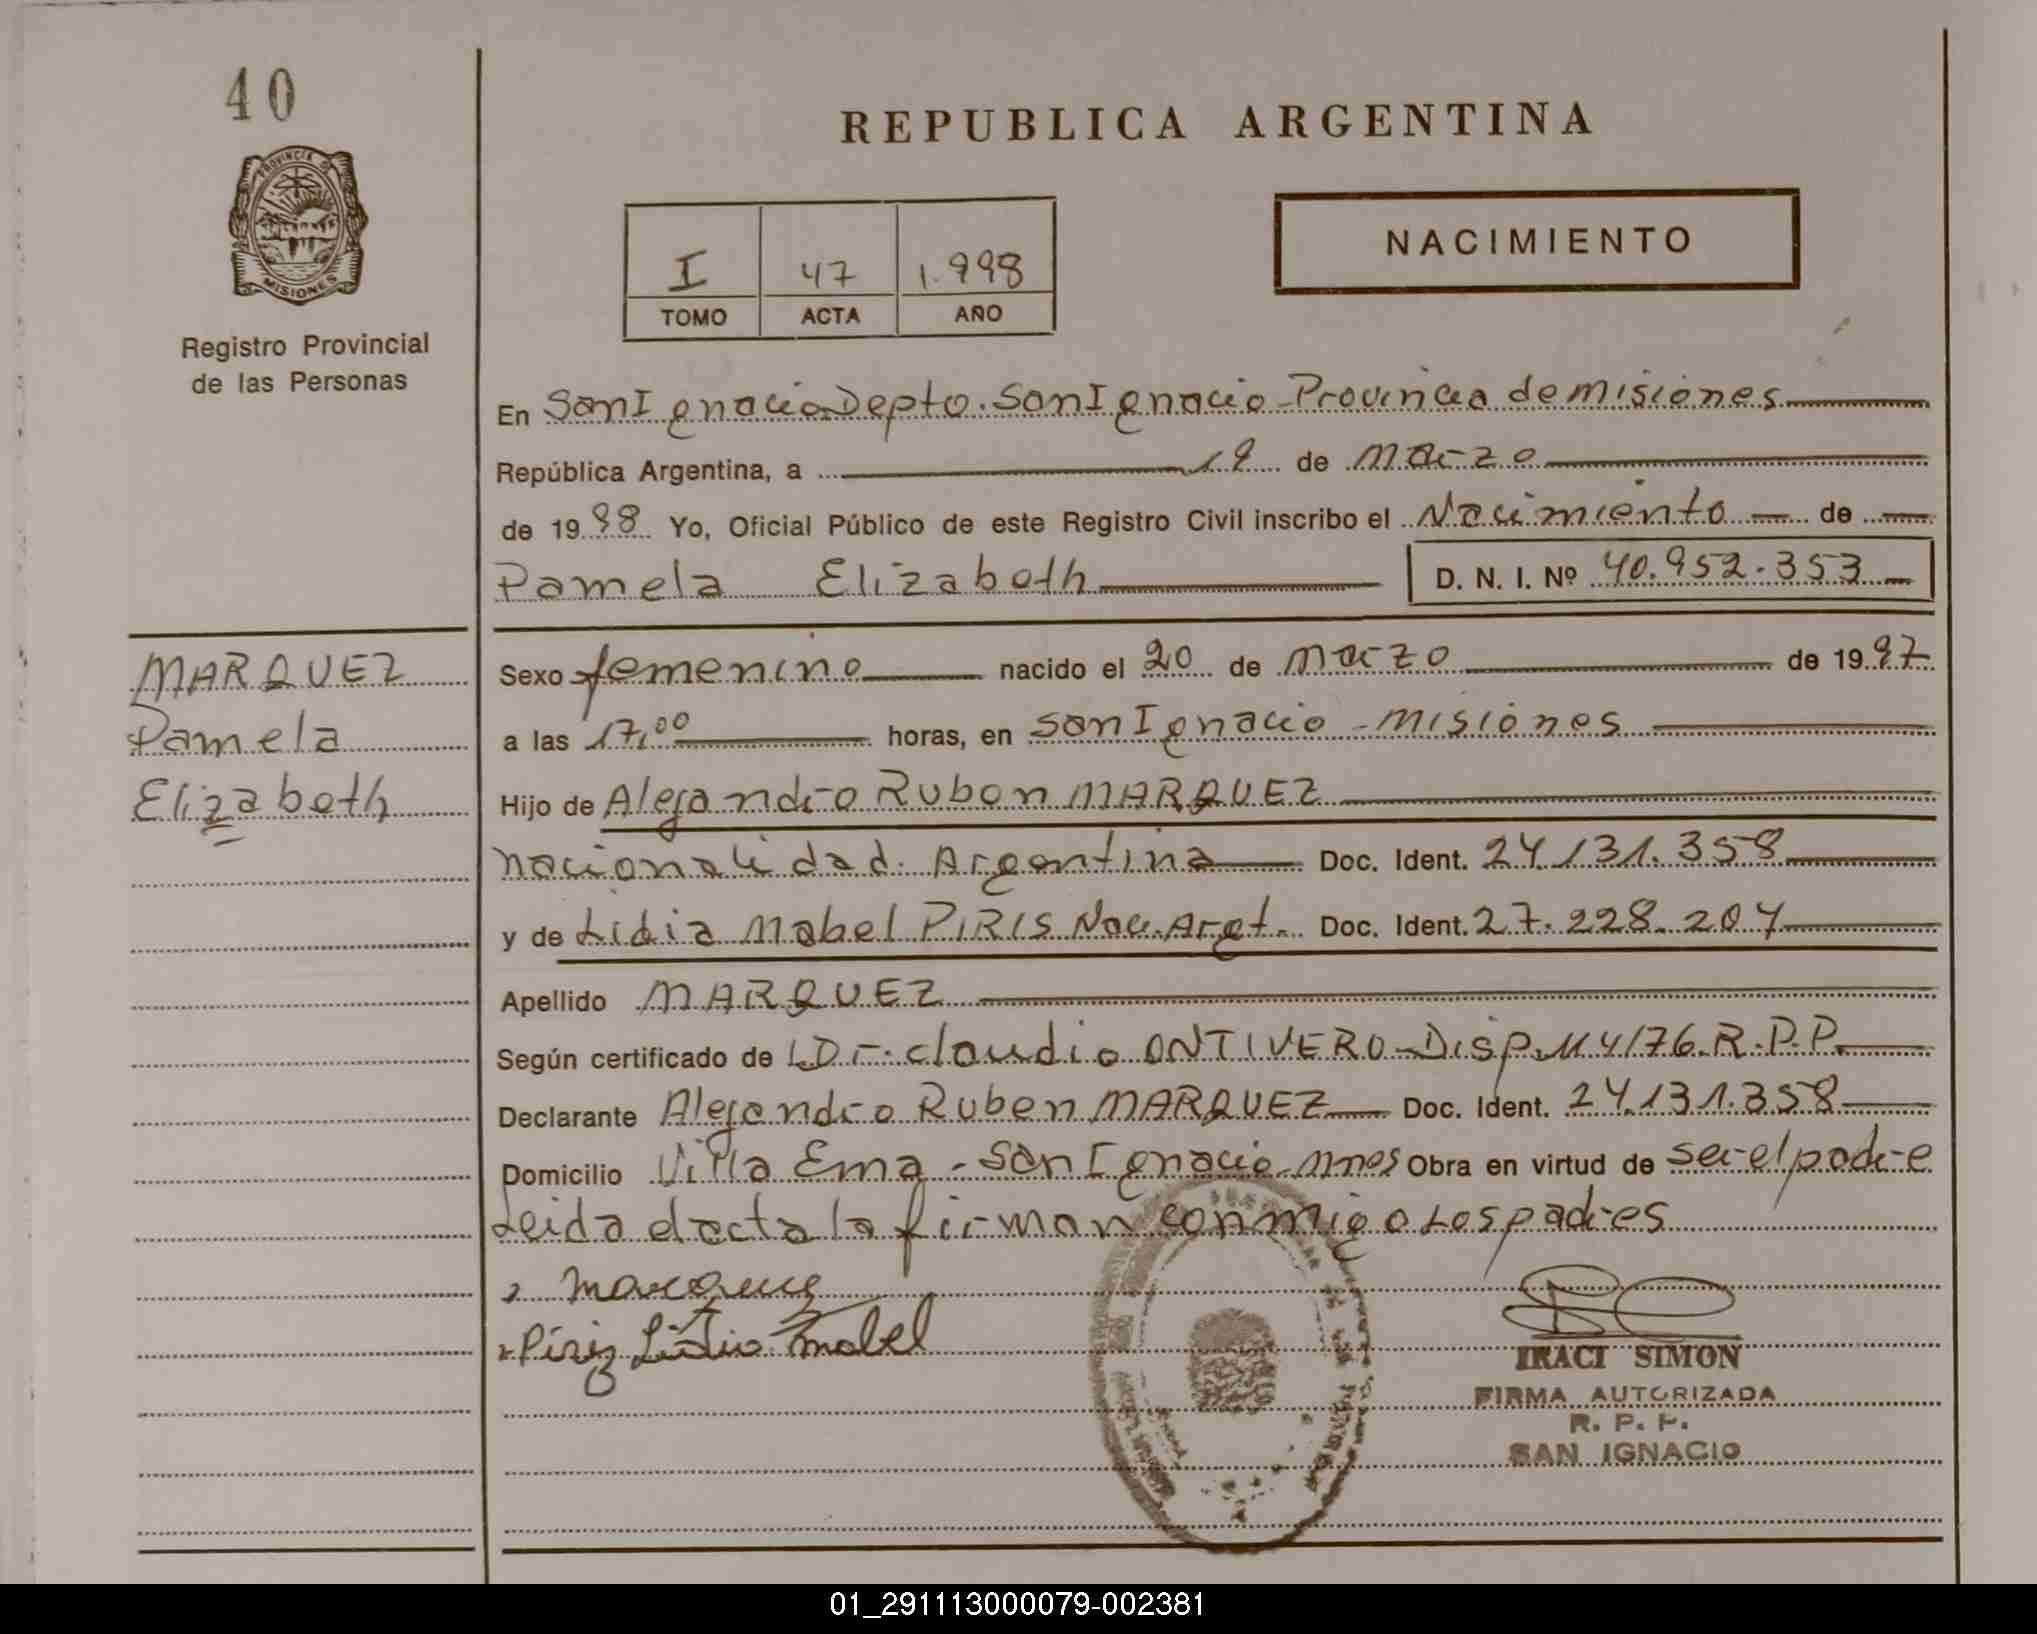 40
PROVINCIA DE
MISIONES
Registro Provincial
de las Personas
REPUBLICA ARGENTINA
I 47 1.998
TOMO ACTA AÑO
NACIMIENTO
En San Ignacio Depto. San Ignacio - Provincia de Misiones
República Argentina, a 19 de Marzo
de 1998 Yo, Oficial Público de este Registro Civil inscribo el Nacimiento de
Pamela Elizabeth D. N. I. Nº 40.952.353
MARQUEZ
Pamela
Elizabeth
Sexo femenino nacido el 20 de Marzo de 1997
a las 17,00 horas, en San Ignacio - Misiones
Hijo de Alejandro Ruben MARQUEZ
Nacionalidad. Argentina Doc. Ident. 24.131.358
y de Lidia Mabel PIRIS Nac. Argt. Doc. Ident. 27.228.204
Apellido MARQUEZ
Según certificado de Dr. Claudio ONTIVERO - Disp. 114/76. R.P.P.
Declarante Alejandro Ruben MARQUEZ Doc. Ident. 24.131.358
Domicilio Villa Ema - San Ignacio - Mnes Obra en virtud de ser el padre
Leida el acta la firman conmigo los padres
Marquez
Piriz Lidia Mabel
IRACI SIMON
FIRMA AUTORIZADA
R. P. P.
SAN IGNACIO
01_291113000079-002381